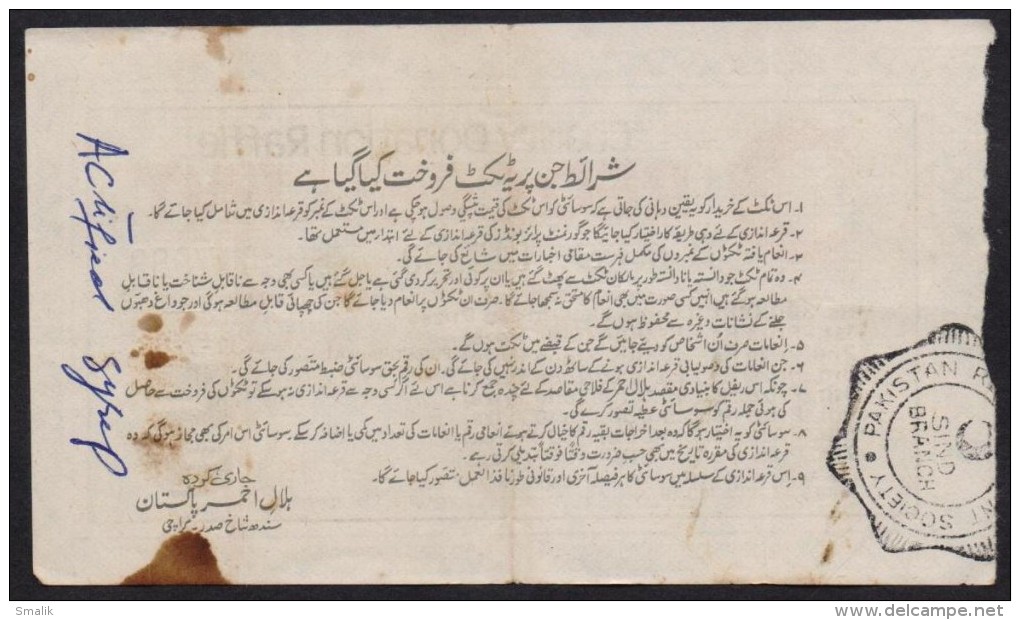 شرائط جن پر یہ ٹکٹ فروخت کیا گیا ہے
۱۔ اس ٹکٹ کے خریدار کو یہ یقین دہانی کی جاتی ہے کہ سوسائٹی کو اس ٹکٹ کی قیمت پیشگی وصول ہو چکی ہے اور اس ٹکٹ کے نمبر کو قرعہ اندازی میں شامل کیا جائے گا۔
۲۔ قرعہ اندازی کے لئے وہی طریقہ کار اختیار کیا جائیگا جو گورنمنٹ پرائز بونڈز کی قرعہ اندازی کے لئے ابتداء میں مستعمل تھا۔
۳۔ انعام یافتہ ٹکٹوں کے نمبروں کی مکمل فہرست مقامی اخبارات میں شائع کی جائے گی۔
۴۔ وہ تمام ٹکٹ جو دانستہ یا نا دانستہ طور پر مالکان ٹکٹ سے پھٹ گئے ہیں یا ان پر کوئی اور تحریر کر دی گئی ہے یا جل گئے ہیں یا کسی بھی وجہ سے ناقابل شناخت یا نا قابل
مطالعہ ہو گئے ہیں انہیں کسی صورت میں بھی انعام کا مستحق نہ سمجھا جائے گا۔ صرف ان ٹکٹوں پر انعام دیا جائے گا جن کی چھپائی قابل مطالعہ ہو گی اور جو داغ دھبوں
جلنے کے نشانات وغیرہ سے محفوظ ہوں گے۔
۵۔ انعامات صرف اُن اشخاص کو دیئے جائیں گے جن کے قبضے میں ٹکٹ ہوں گے۔
۶۔ جن انعامات کی وصولیابی قرعہ اندازی ہونے کے ساٹھ دن کے اندر نہیں کی جائے گی۔ ان کی رقم بحق سوسائٹی ضبط متصور کی جائے گی۔
۷۔ چونکہ اس ریفل کا بنیادی مقصد ہلال احمر کے فلاحی مقاصد کے لئے چندہ جمع کرنا ہے اس لئے اگر کسی وجہ سے قرعہ اندازی نہ ہو سکے تو ٹکٹوں کی فروخت سے حاصل
کی ہوئی جملہ رقم کو سوسائٹی عطیہ تصور کرے گی۔
۸۔ سوسائٹی کو یہ اختیار ہو گا کہ وہ بعد اخراجات بقیہ رقم کا خیال کرتے ہوئے انعامی رقم یا انعامات کی تعداد میں کمی یا اضافہ کر سکے سوسائٹی اس امر کی بھی مجاز ہو گی کہ وہ
قرعہ اندازی کی مقررہ تاریخ میں بھی حسب ضرورت وقتاً فوقتاً تبدیلی کرتی رہے۔
۹۔ اِس قرعہ اندازی کے سلسلہ میں سوسائٹی کا ہر فیصلہ آخری اور قانونی طور نافذ العمل متصور کیا جائے گا۔
جاری کردہ
ہلال احمر پاکستان
سندھ شاخ صدر۔ کراچی
PAKISTAN R
NT SOCIETY
SIND
BRANCH
Smalik
delcampe.net